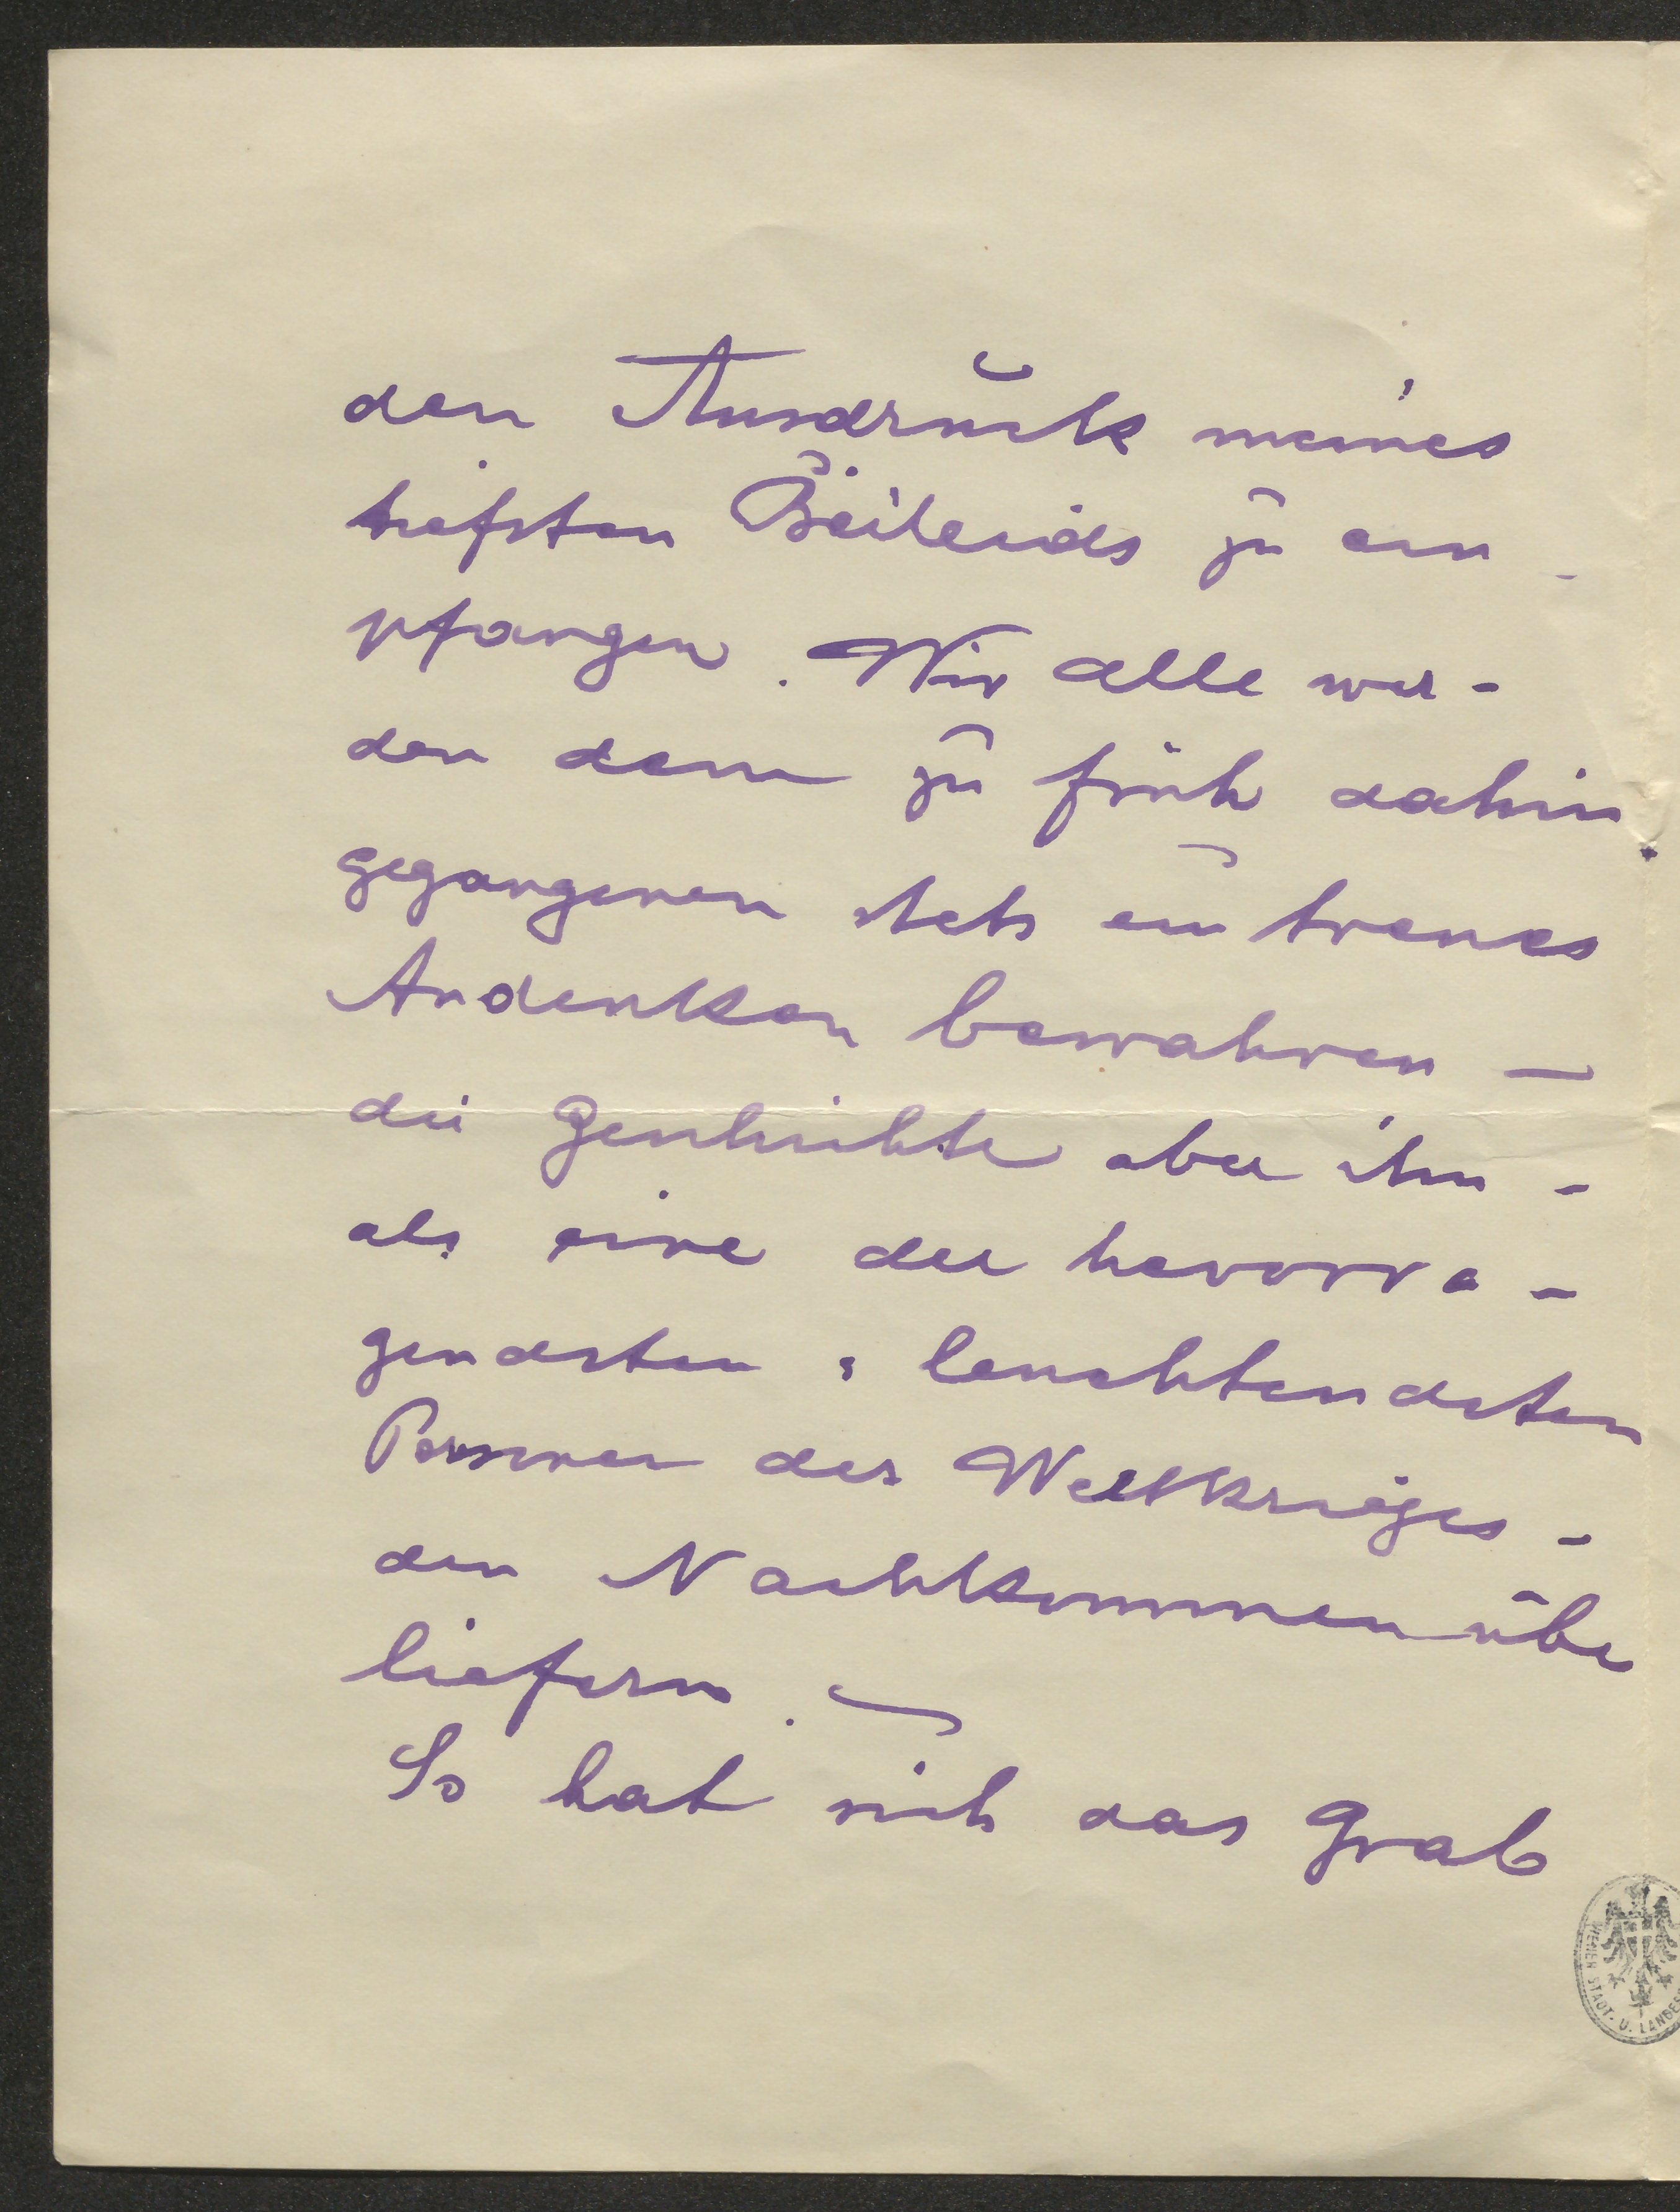 den Ausdruck meines
tiefsten Beileids zu em-
pfangen. Wir alle wer-
den dem zu früh dahin
gegangenen stets ein treues
Andenken bewahren —
die Geschichte aber ihn -
als eine der hervorra-
gendsten, leuchtendsten
Personen des Weltkrieges -
den Nachkommen über
liefern. —
So hat sich das Grab
WIENER STADT- U. LANDES